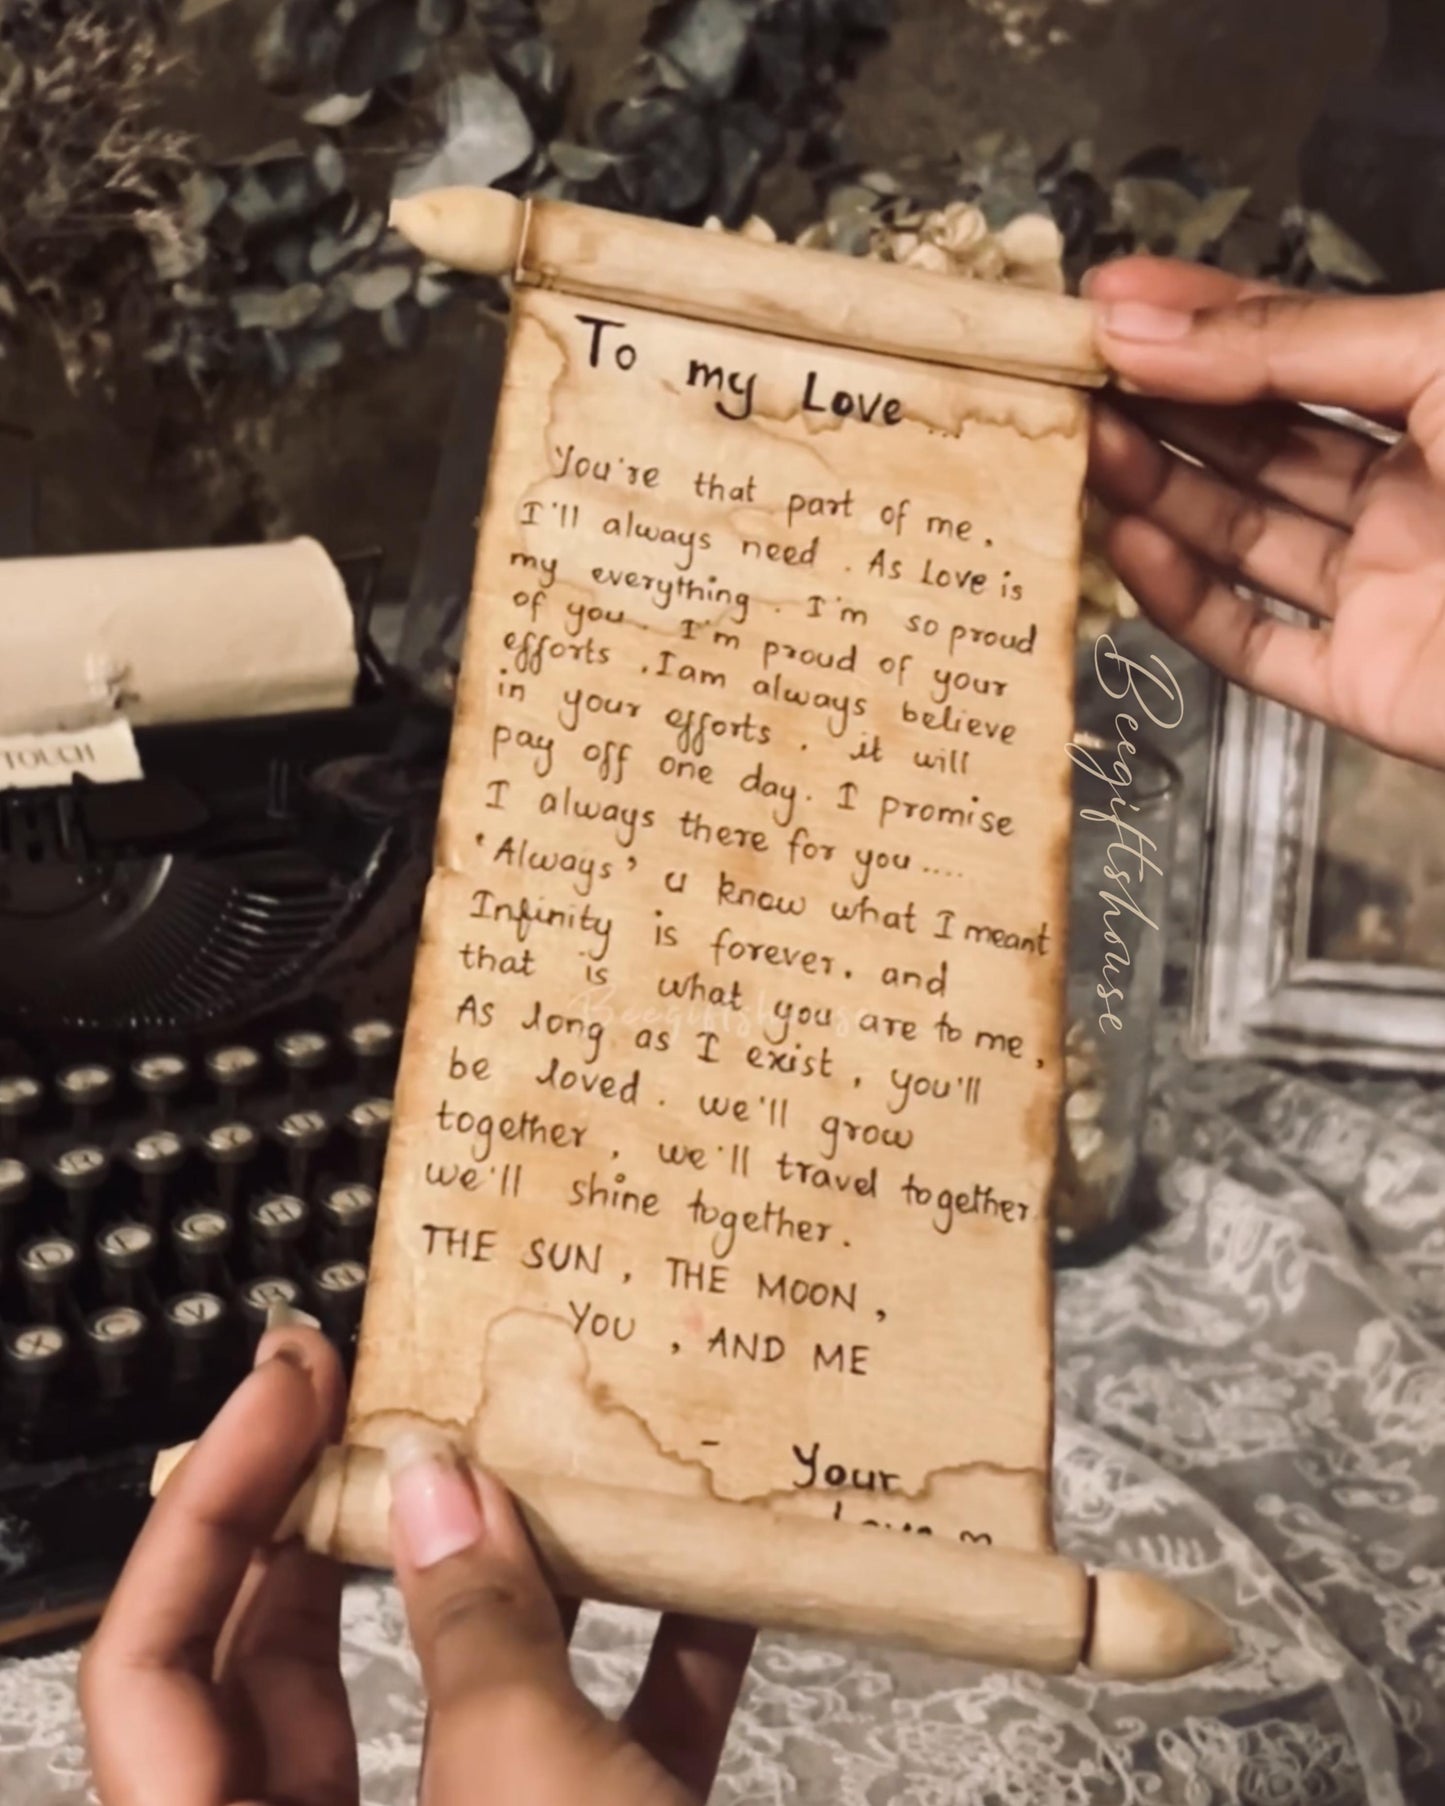 To my Love ...
You're that part of me.
I'll always need . As Love is
my everything . I'm so proud
of you . I'm proud of your
efforts . I am always believe
in your efforts . it will
pay off one day. I promise
I always there for you ....
'Always' u know what I meant
Infinity is forever. and
that is what you are to me ,
As long as I exist , you'll
be loved . we'll grow
together , we'll travel together
we'll shine together .
THE SUN , THE MOON ,
YOU , AND ME
- Your
Beegiftshouse
Beegiftshouse
TOUCH